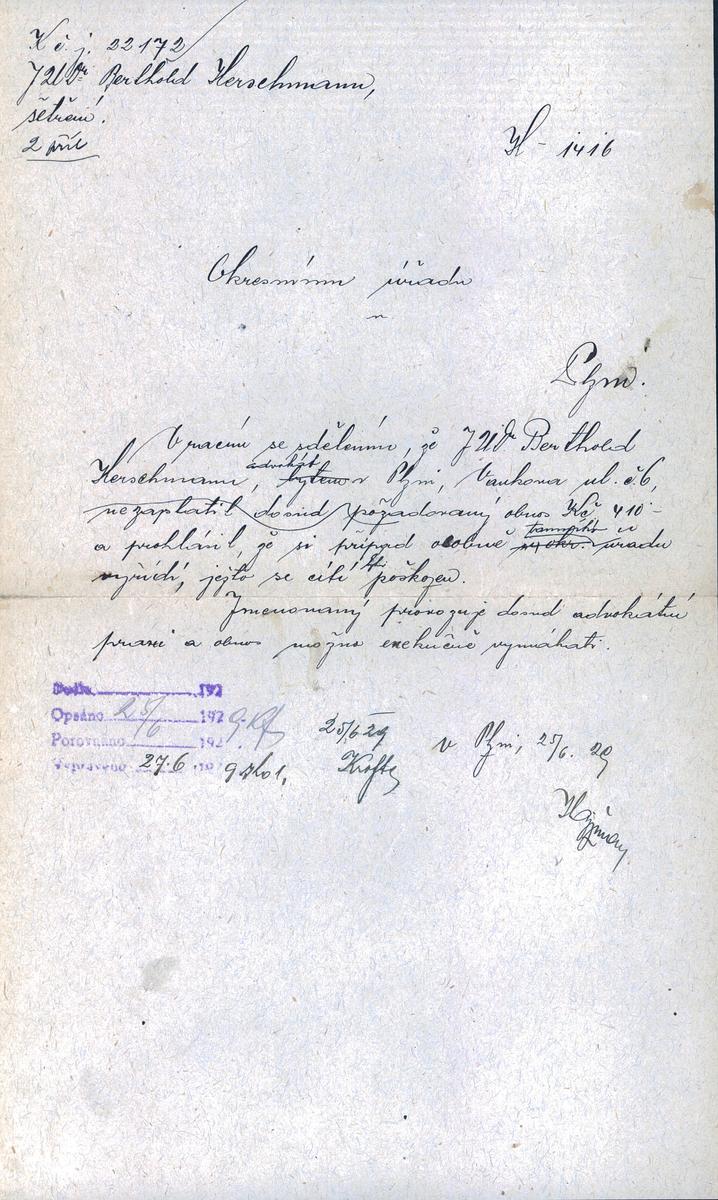 K č. j. 22172
JUDr Berthold Herschmann,
šetření.
2 příl
H - 1416
Okresnímu úřadu
v
Plzni.
Vracím se sdělením, že JUDr Berthold
Herschmann, advokát bytem v Plzni, Vaňkova ul. č. 6,
nezaplatil dosud požadovaný obnos Kč 410·-
a prohlásil, že si případ osobně tamního u okr. úřadu
vyřídí, ježto se cítí poškozen.
Jmenovaný provozuje dosud advokátní
praxi a obnos možno exekučně vymáhati.
Došlo 192
Opsáno 25/6 1929
Porovnáno 192
Vypraveno 27.6 192 9
25/6 29
v Plzni, 25/6. 29